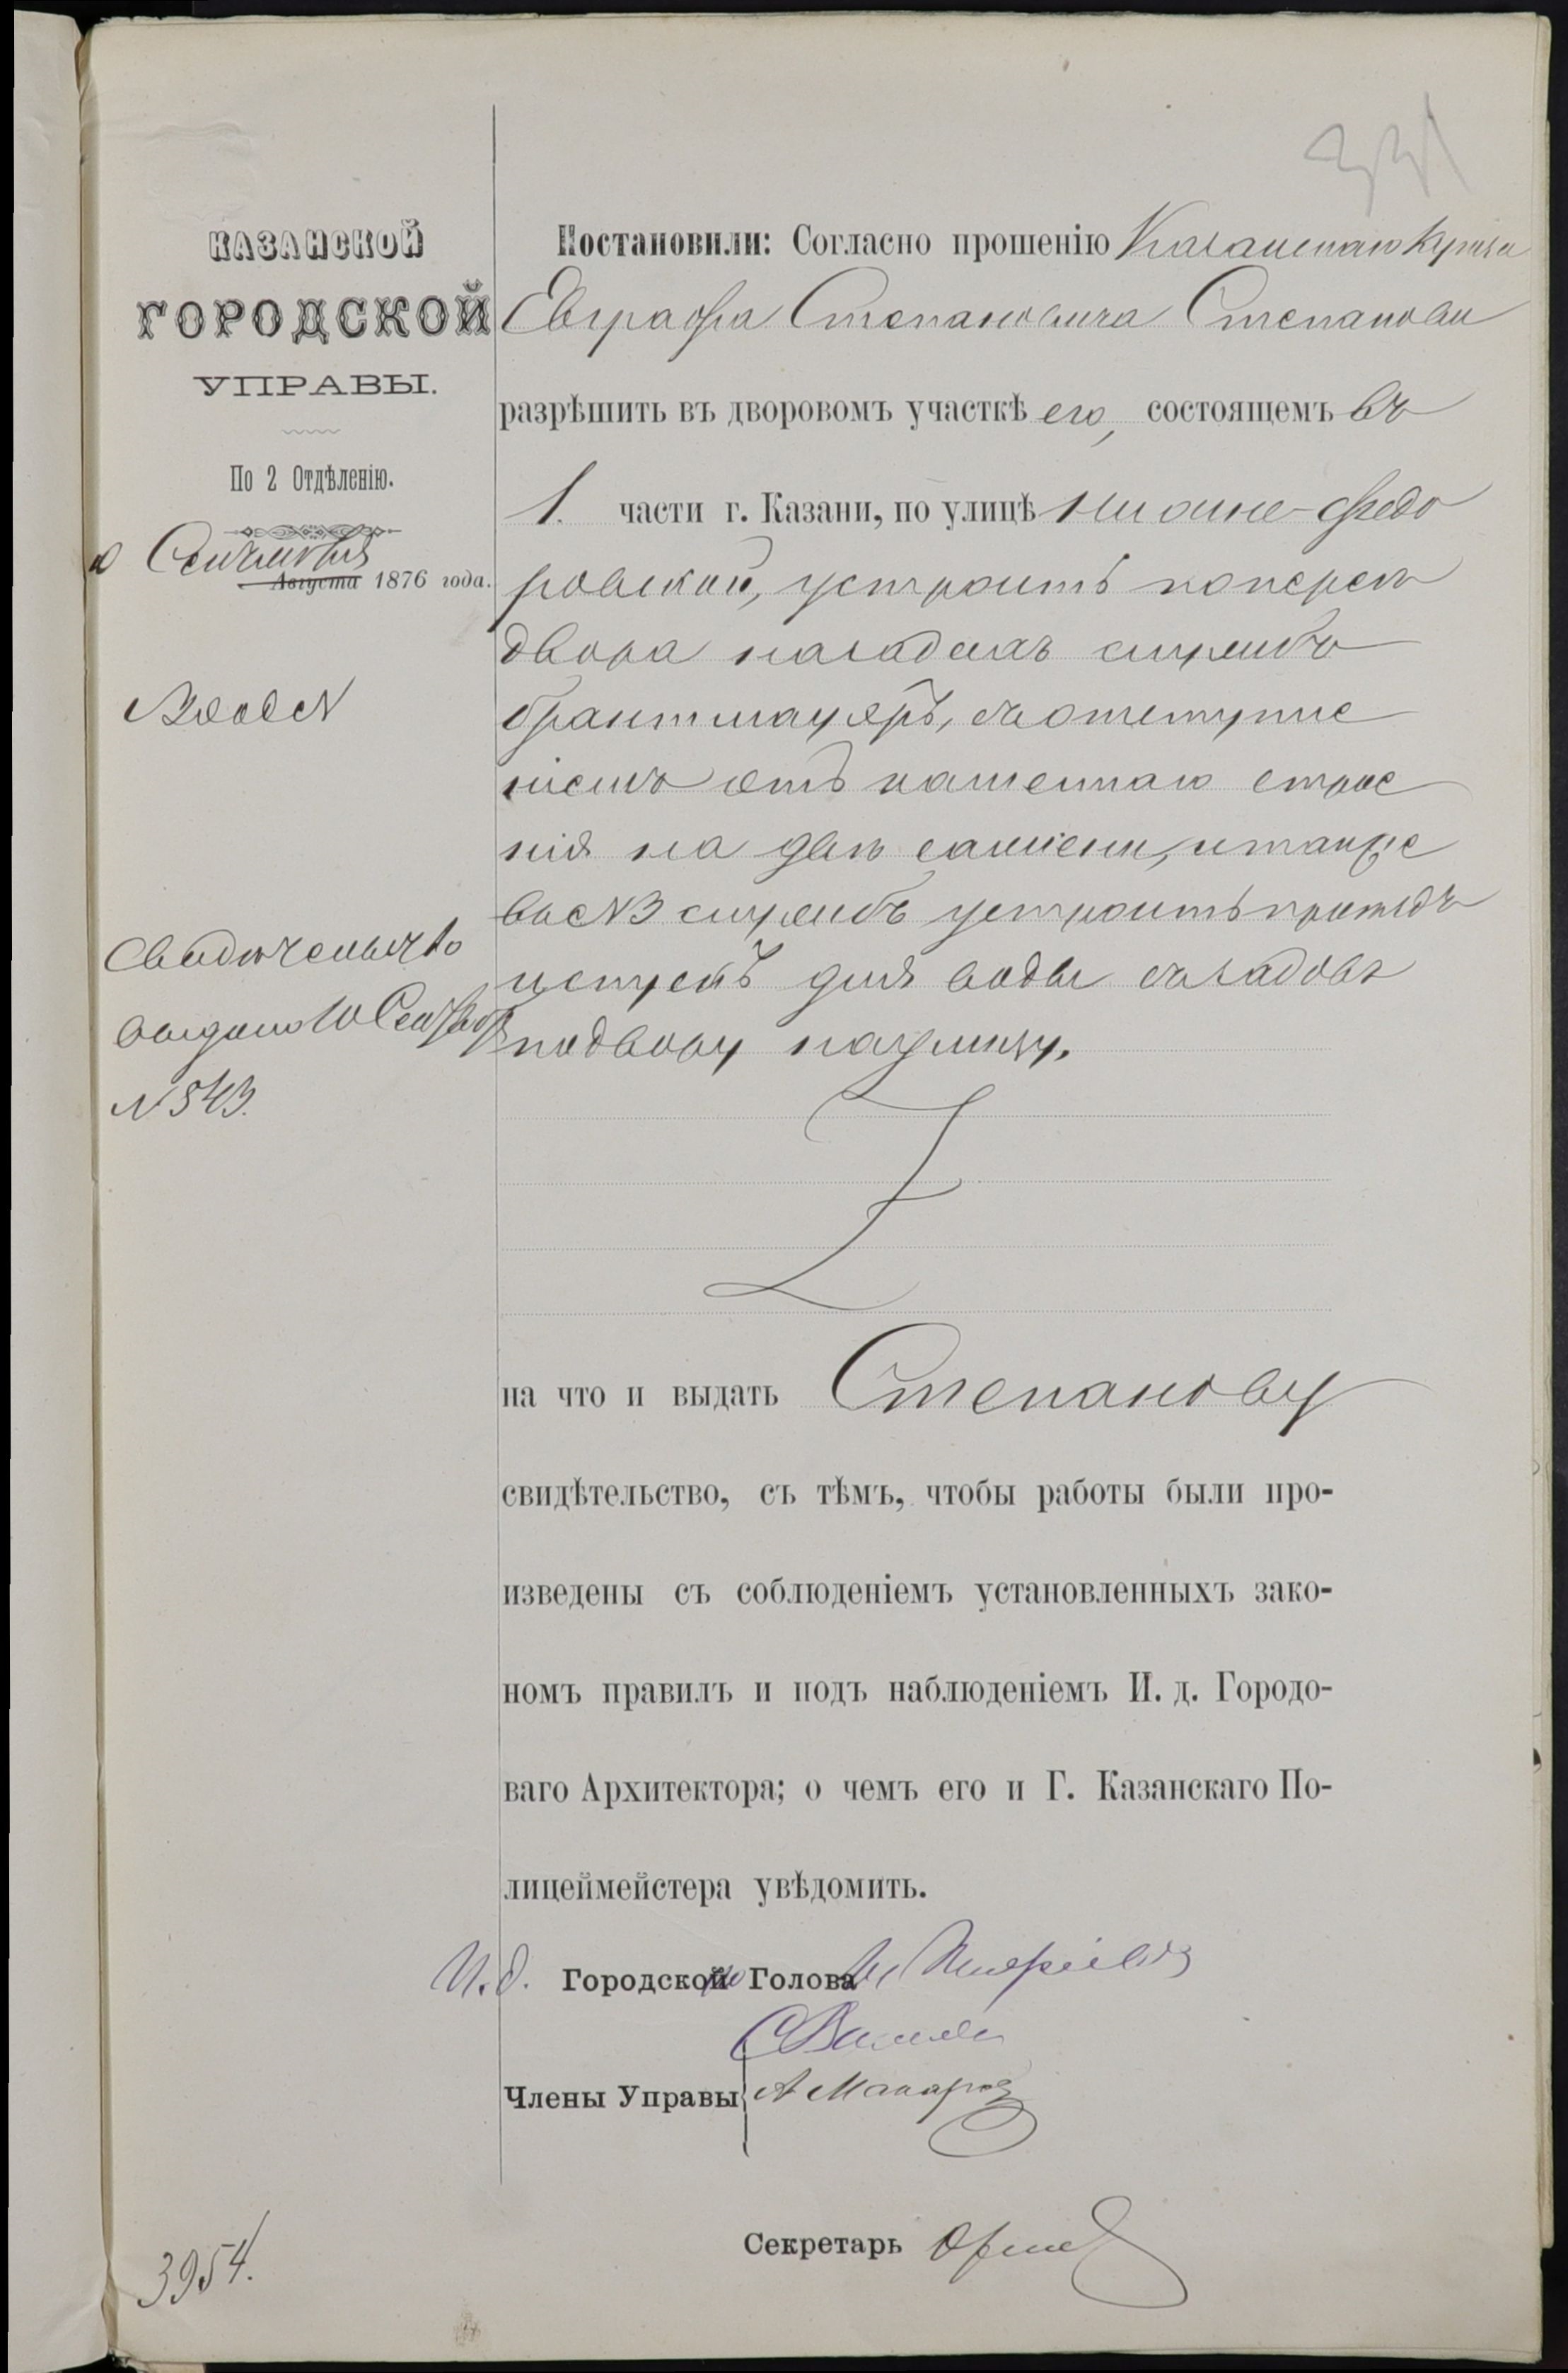 331
КАЗАНСКОЙ
ГОРОДСКОЙ
УПРАВЫ.
По 2 Отдѣленію.
10 Сентября
Августа 1876 года.
Свидѣтельство
выдано 10 Сентяб
N 543.
3954.
Постановили: Согласно прошенію Казанскаго купца
Евграфа Степановича Степанова
разрѣшить въ дворовомъ участкѣ его, состоящемъ въ
1. части г. Казани, по улицѣ Нижне-Федо
ровской, устроить поперекъ
двора назадахъ службъ
брантмауеръ, съ отступле
ніемъ отъ каменнаго строе
нія на двѣ сажени, и также
службъ устроить
для воды съ задовъ
по двору на улицу.
на что и выдать Степанову
свидѣтельство, съ тѣмъ, чтобы работы были про-
изведены съ соблюденіемъ установленныхъ зако-
номъ правилъ и подъ наблюденіемъ И. д. Городо-
ваго Архитектора; о чемъ его и Г. Казанскаго По-
лицеймейстера увѣдомить.
И. д. Городского Голова
Члены Управы А Макаровъ
Секретарь